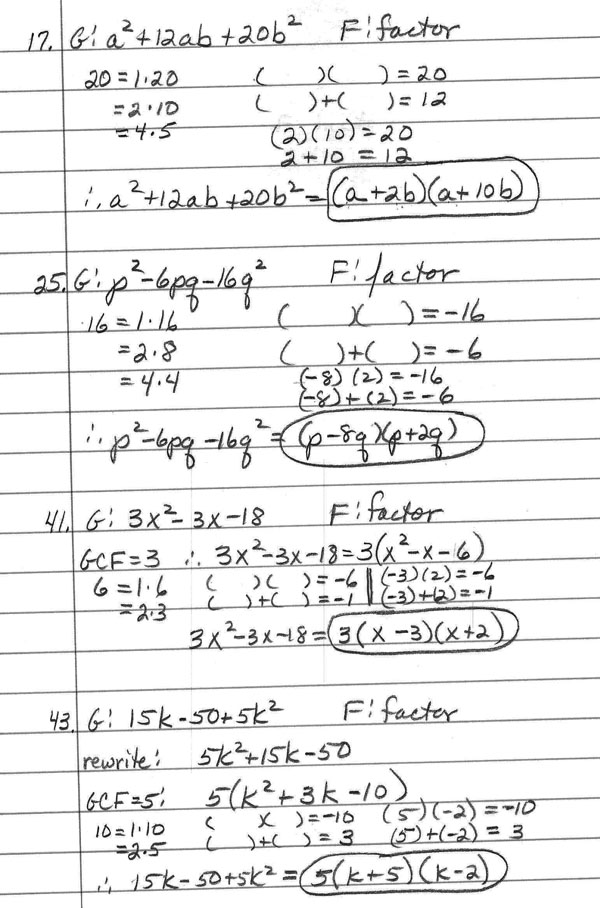 17. G: a²+12ab+20b² F: factor
20=1·20 ( )( )=20
=2·10 ( )+( )=12
=4·5 (2)(10)=20
2+10=12
∴ a²+12ab+20b²=(a+2b)(a+10b)
25. G: p²-6pq-16q² F: factor
16=1·16 ( )( )=-16
=2·8 ( )+( )=-6
=4·4 (-8)(2)=-16
(-8)+(2)=-6
∴ p²-6pq-16q²=(p-8q)(p+2q)
41. G: 3x²-3x-18 F: factor
GCF=3 ∴ 3x²-3x-18=3(x²-x-6)
6=1·6 ( )( )=-6 || (-3)(2)=-6
=2·3 ( )+( )=-1 || (-3)+(2)=-1
3x²-3x-18=3(x-3)(x+2)
43. G: 15k-50+5k² F: factor
rewrite: 5k²+15k-50
GCF=5: 5(k²+3k-10)
10=1·10 ( )( )=-10 (5)(-2)=-10
=2·5 ( )+( )=3 (5)+(-2)=3
∴ 15k-50+5k²=5(k+5)(k-2)